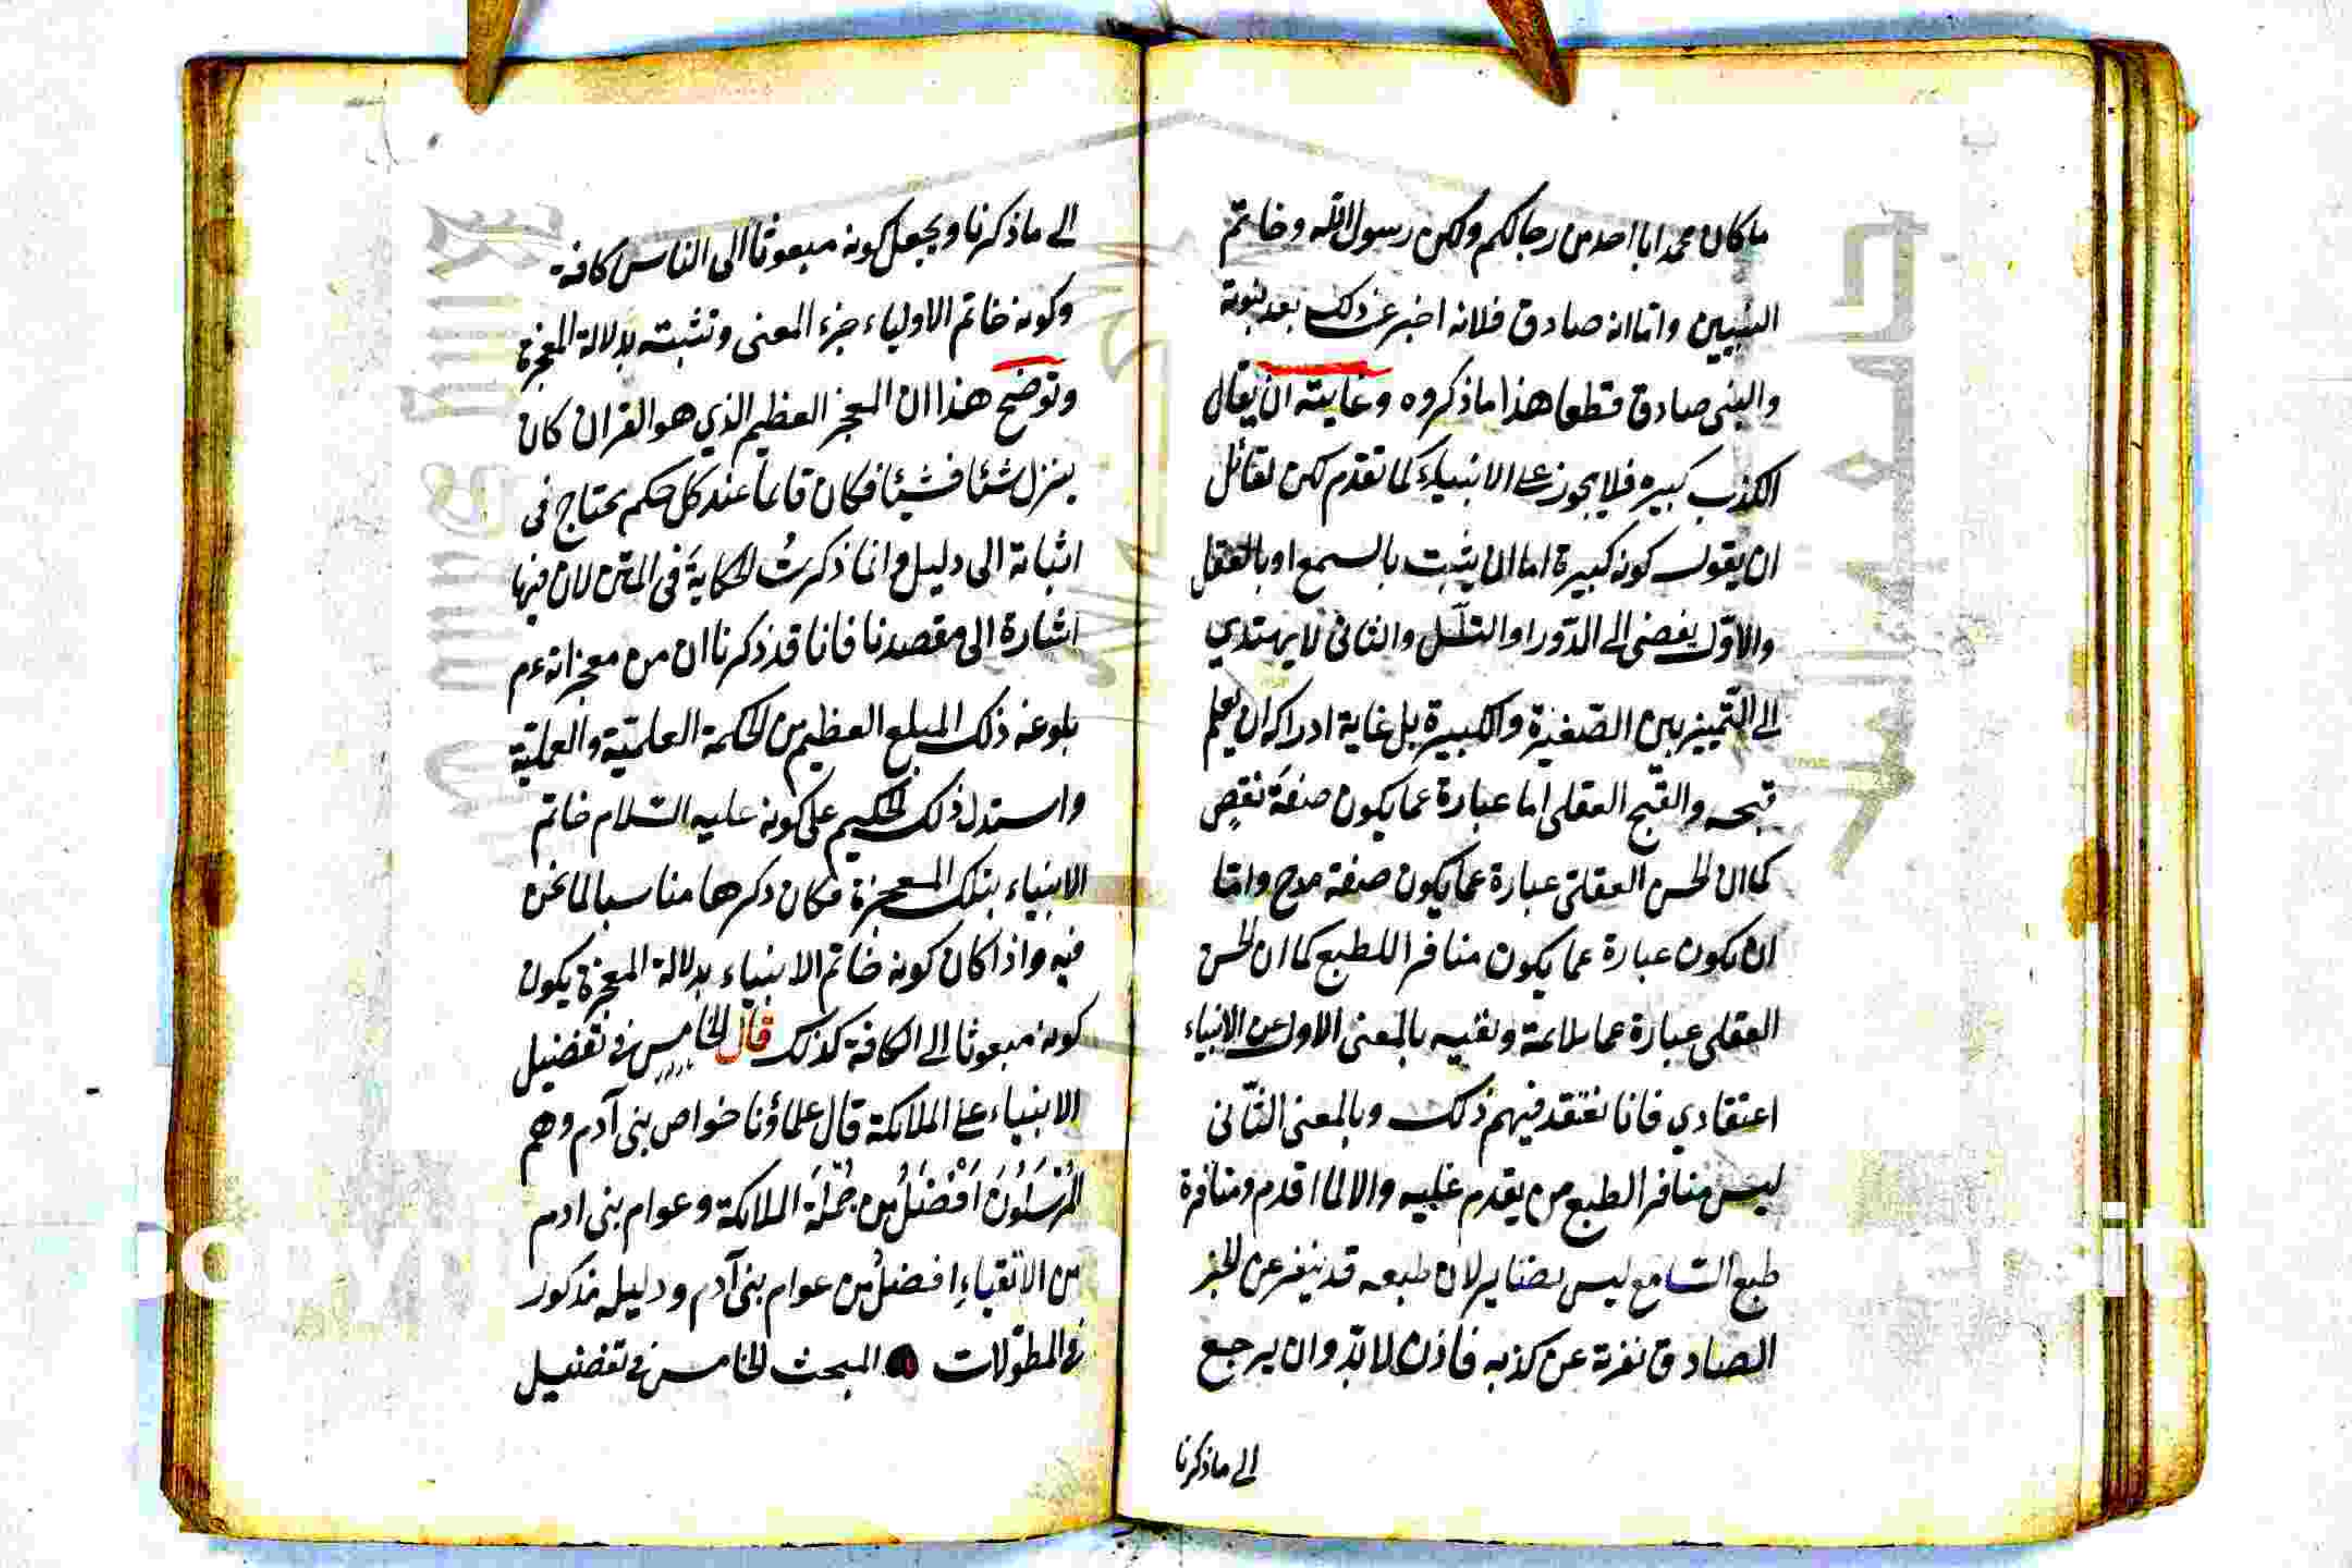 ما كان محمد ابا احد من رجالكم ولكن رسول الله وخاتم
النبيين واما انه صادق فلانه اخبر عن ذلك بعد نبوته
والنبى صادق قطعا هذا ما ذكروه وغايته ان يقال
الكذب كبيرة فلا يجوز على الانبياء كما تقدم لكن لقائل
ان يقول كونه كبيرة اما ان يثبت بالسمع او بالعقل
والاوّل يفضى الى الدّور او التسلّسل والثانى لا يهتدي
الى التّمييز بين الصّغيرة والكبيرة بل غاية ادراكه ان يعلم
قبحه والقبح العقلى اما عبارة عما يكون صفة نقصٍ
كما ان الحسن العقلىّ عبارة عما يكون صفة مدح وامّا
ان يكون عبارة عما يكون منافرا للطبع كما ان الحسن
العقلى عبارة عما يلائمه ونفيه بالمعنى الاول عن الانبياء
اعتقادي فانا نعتقد فيهم ذلك وبالمعنى الثّانى
ليس منافر الطبع من يقدم عليه والا لما اقدم ومنافرة
طبع السّامع ليس بضاير لان طبعه قد ينفر عن الخبر
الصادق نفرته عن كذبه فاذن لا بدّ وان يرجع
الى ما ذكرنا
الى ما ذكرنا ويجعل كونه مبعوثا الى الناس كافة
وكونه خاتم الاولياء جزء المعنى ونثبته بدلالة المعجزة
وتوضح هذا ان المعجز العظيم الذي هو القران كان
ينزل شئا فشيئا فكان قائما عند كل حكم يحتاج فى
اثباته الى دليل وانما ذكرتُ الحكايةَ فى المتن لان فيها
اشارة الى مقصدنا فانا قد ذكرنا ان من معجزاته عم
بلوغه ذلك المبلغ العظيم من الحكمة العلميّة والعمليّة
واستدل ذلك الحكيم على كونه عليه السّلام خاتم
الانبياء بتلك المعجزة فكان ذكرها مناسبا لما نحن
فيه واذا كان كونه خاتم الانبياء بدلالة المعجزة يكون
كونه مبعوثا الى الكافة كذلك قال الخامس فى تفضيل
الانبياء على الملائكة قال علماؤنا خواص بنى آدم وهم
المُرْسَلُونَ اَفْضَلُ من جُمْلَة الملائكة وعوام بنى ادم
من الاتقياءِ افضلُ من عوام بنى آدم ودليله مذكور
فى المطوّلات المبحث الخامس فى تفضيل